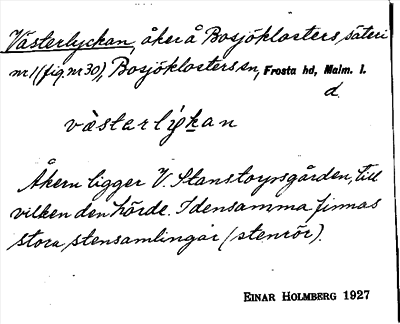 Västerlyckan, åker å Bosjöklosters säteri
nr 1 (fig. nr 30), Bosjöklosters sn, Frosta hd, Malm. l.
d.
västerlykan
Åkern ligger V. Stanstorpsgården, till
vilken den hörde. I densamma finnas
stora stensamlingar (stenrör).
EINAR HOLMBERG 1927